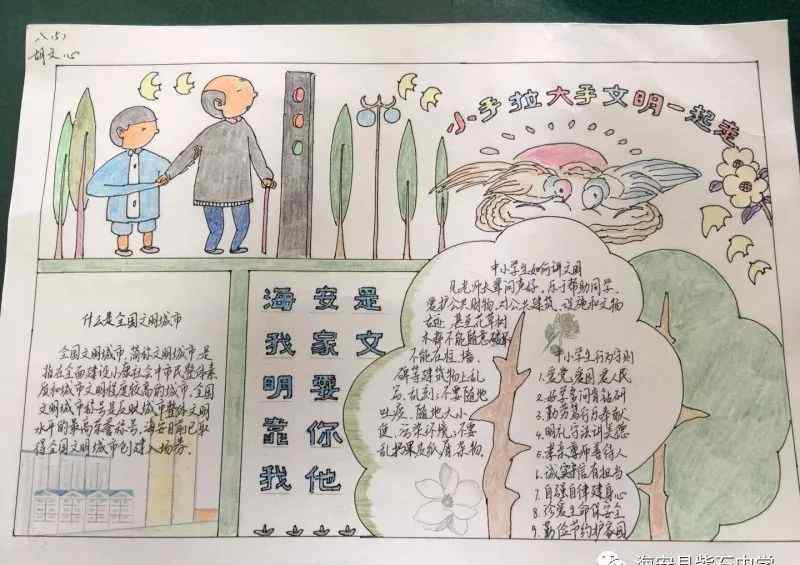 八(5)
胡文心
小手拉大手文明一起走
什么是全国文明城市
全国文明城市,简称文明城市,是
指在全面建设小康社会中市民整体素
质和城市文明程度较高的城市.全国
文明城市称号是反映城市整体文明
水平的最高荣誉称号,海安目前已取
得全国文明城市创建入场券.
海安是
我家文
明要
靠你
我他
中小学生如何讲文明
见老师长辈问声好,乐于帮助同学.
爱护公共财物,对公共建筑、设施和文物
古迹,甚至花草树
木都不能随意破坏
不能在桓、墙、
碑等建筑物上乱
写、乱刻;不要随地
吐痰、随地大小
便,污染环境;不要
乱扔果皮纸屑等物.
中小学生行为守则
1.爱党爱国爱人民
2.好学多问肯钻研
3.勤劳笃行乐奉献
4.明礼守法讲美德
5.孝亲尊师善待人
6.诚实守信有担当
7.自强自律健身心
8.珍爱生命保安全
9.勤俭节约护家园
海安县紫石中学